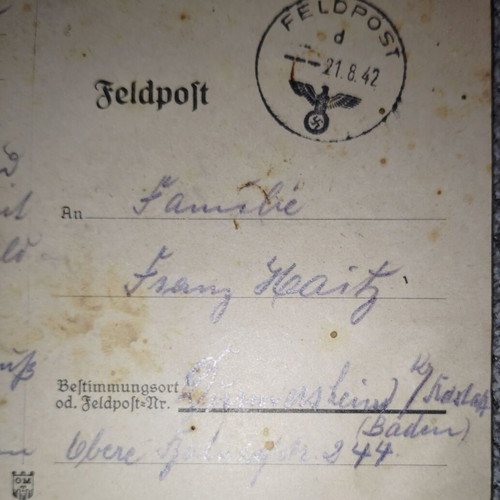 FELDPOST
d
21.8.42
Feldpost
An Familie
Franz Haitz
Bestimmungsort
od. Feldpost-Nr.
b/Rastatt
(Baden)
Obere 244